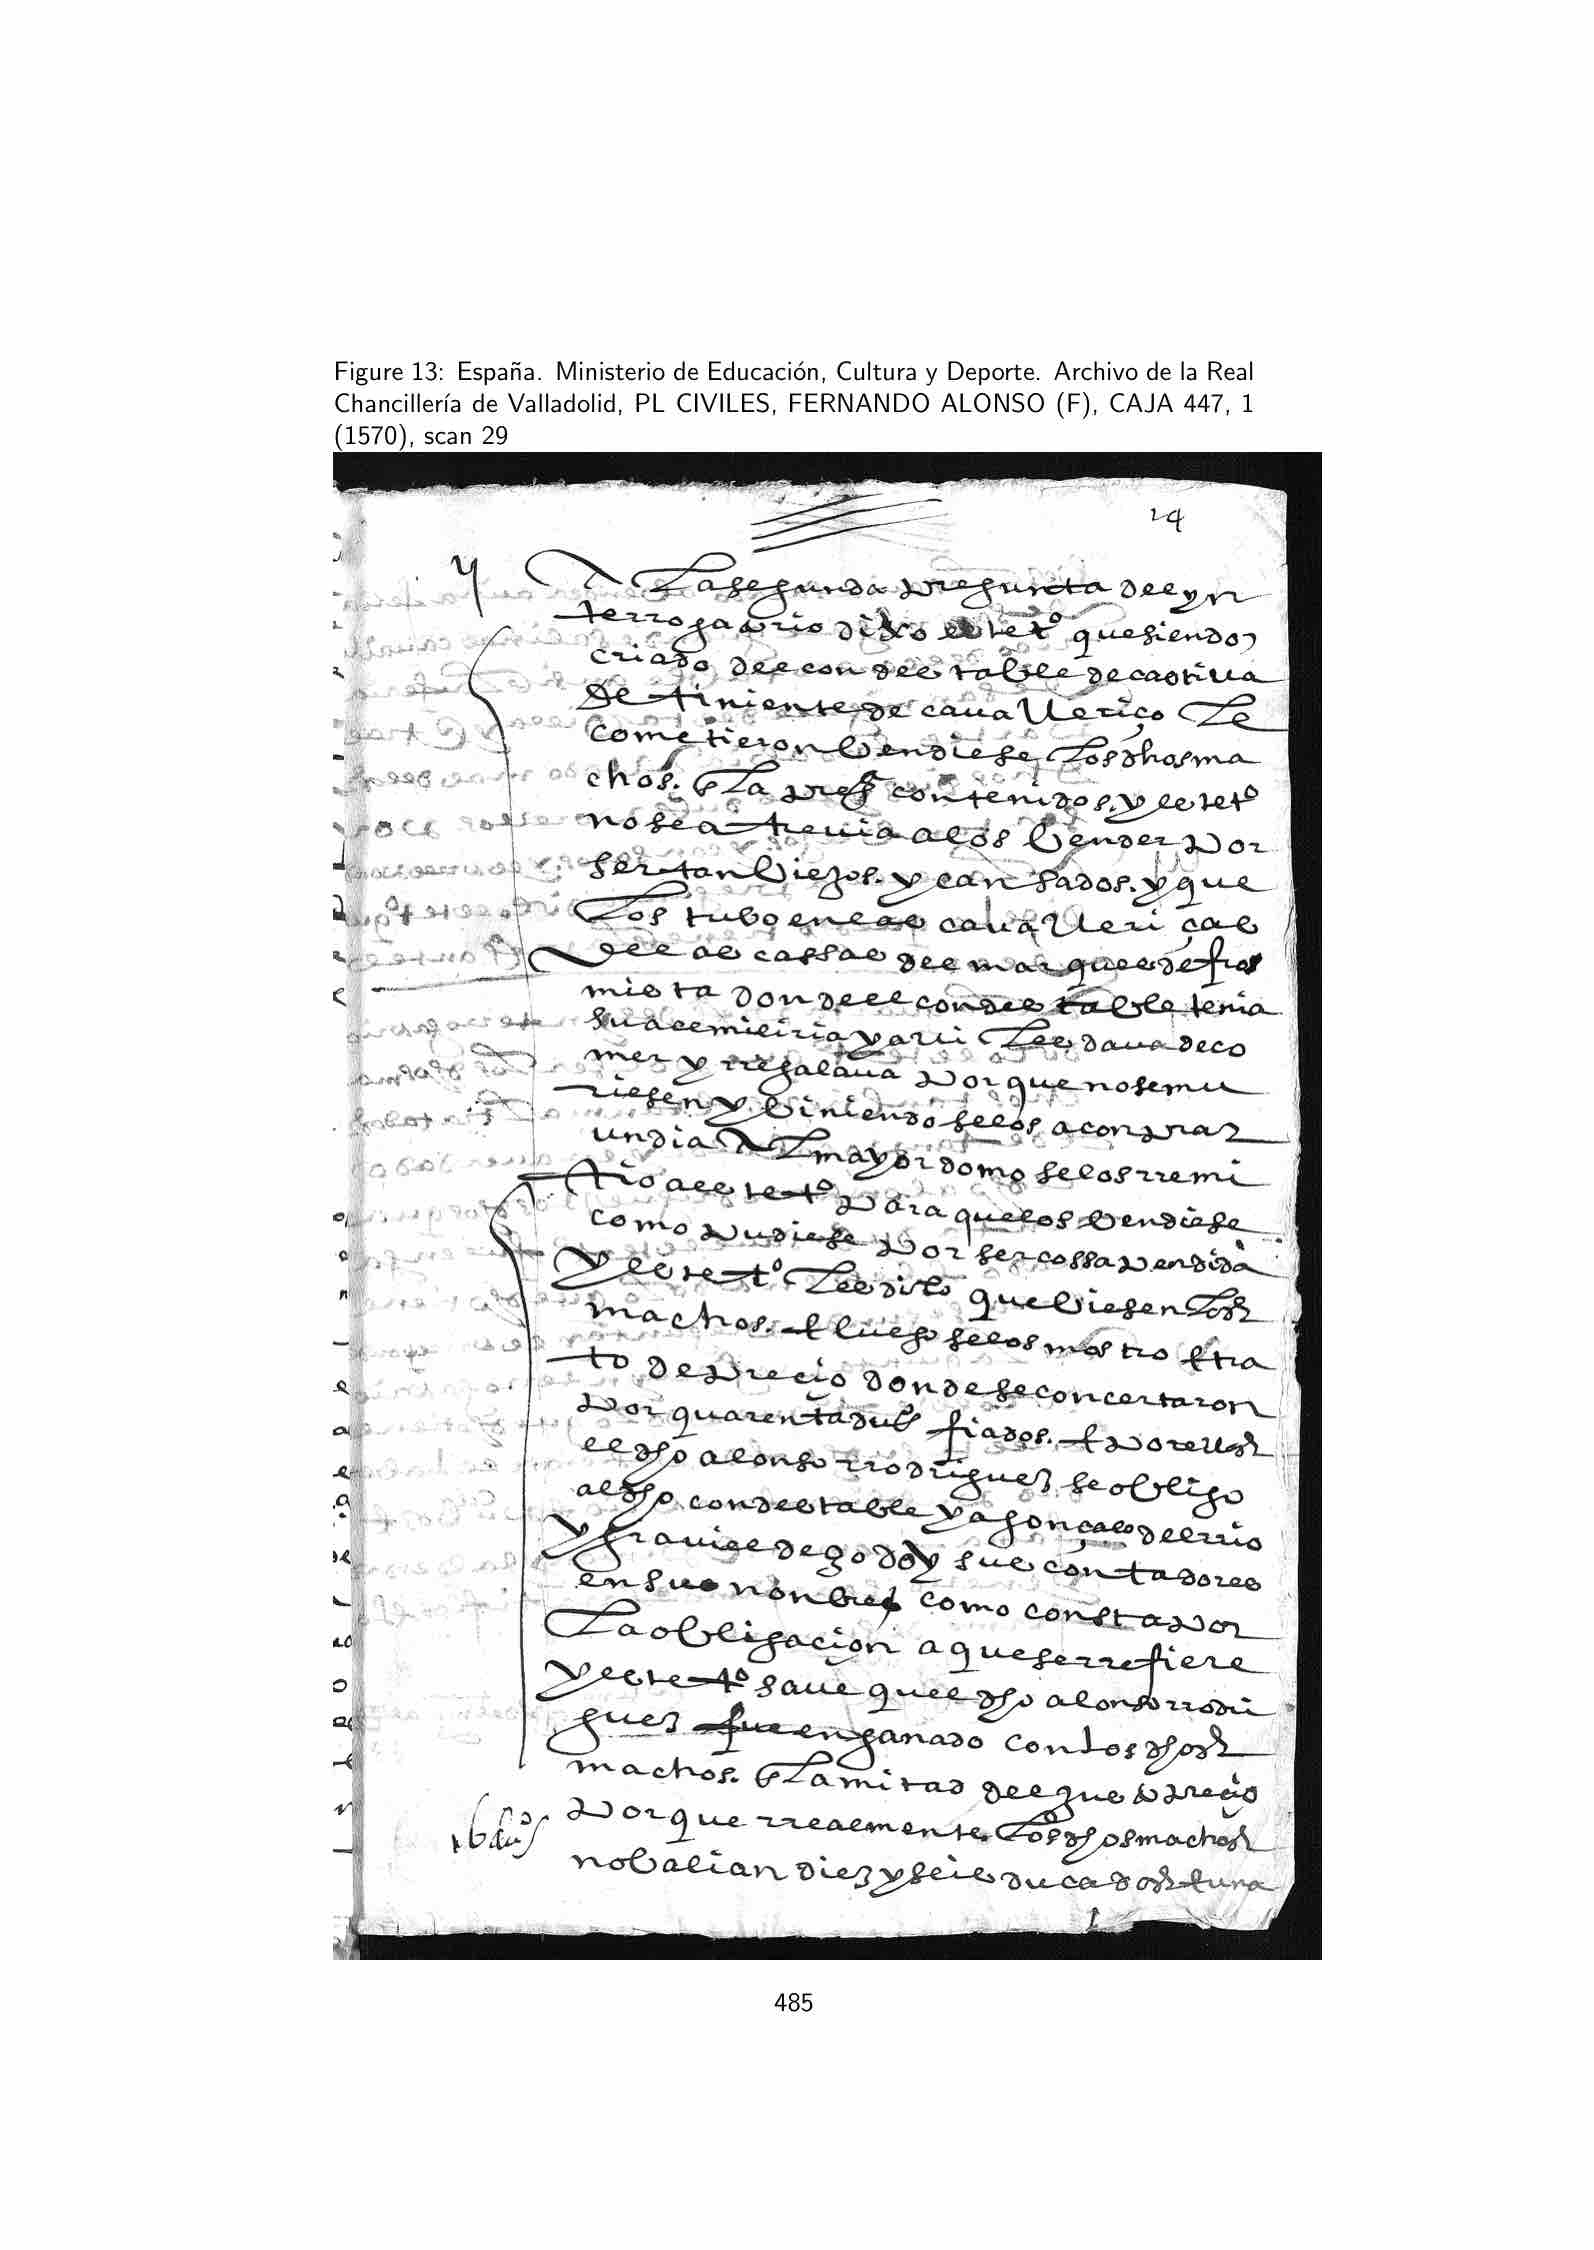 Figure 13: España. Ministerio de Educación, Cultura y Deporte. Archivo de la Real
Chancillería de Valladolid, PL CIVILES, FERNANDO ALONSO (F), CAJA 447, 1
(1570), scan 29
24
A La segunda pregunta del yn
terrogatorio dixo este tº que siendo
criado del condestable de castilla
De tiniente de cavalleriço Le
cometieron bendiese Los dhos ma
chos. En La preg contenidos. y este tº
no se atrevia a los bender por
ser tan biejos. y cansados. y que
Los tubo en las cavalleriças
de las cassas del marques de fro
mista donde el condestable tenia
su acemileria y alli Les dava de co
mer y rregalava porque no se mu
riesen y biniendoselos a conprar
un dia El mayordomo se los rremi
tio a este tº para que los bendiese
como pudiese por ser cossa perdida
y este tº Les dixo que biesen Los
machos. E luego se los mostro E tra
to de precio donde se concertaron
por quarenta dus fiados. E por ellos
el dho alonso rrodriguez se obligo
al dho condestable y a gonçalo del rrio
y graviel de godoy sus contadores
en su nonbre como consta por
La obligacion a que se rrefiere
y este tº save que el dho alonso rrodri
guez fue enganado con los dhos
machos. En La mitad del justo precio
porque rrealmente. Los dhos machos
no balian diez y seis ducados E una
485